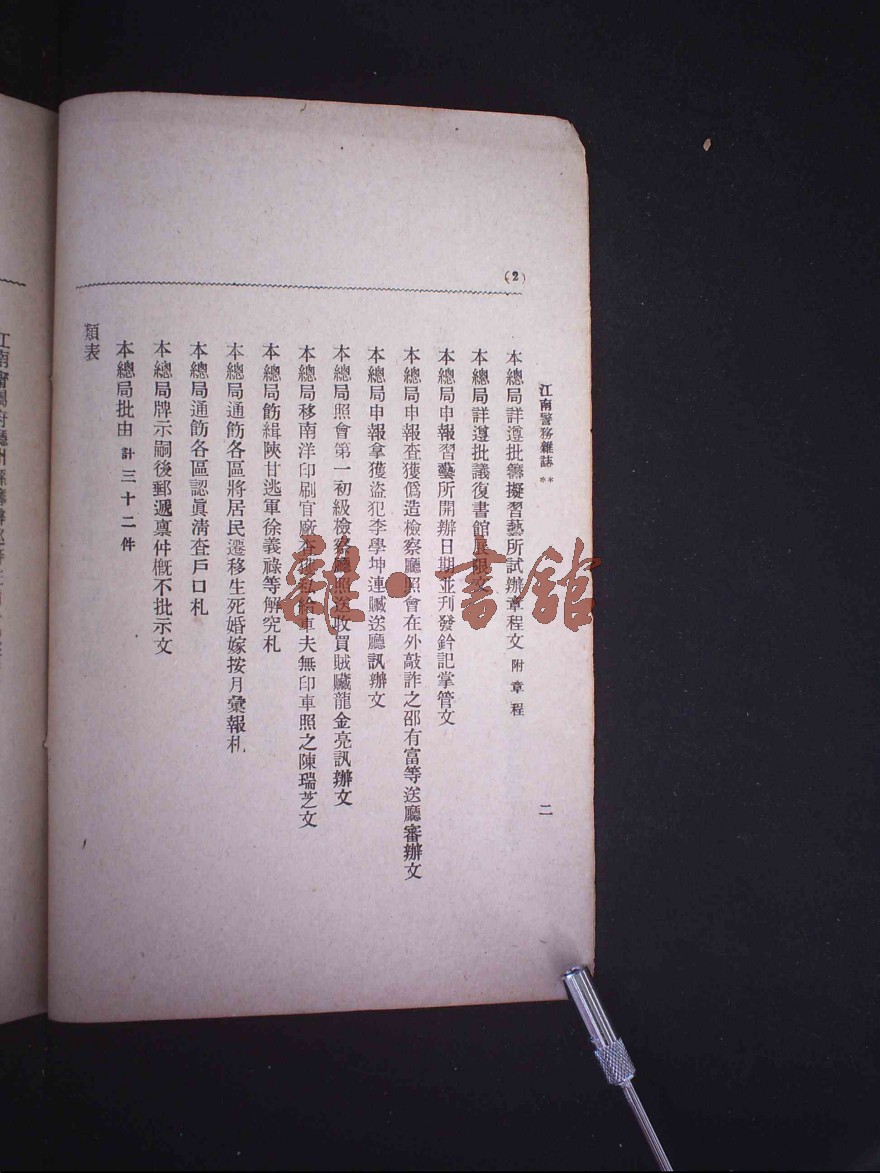 (2)
江南警務雜誌 **
二
本總局詳遵批籌擬習藝所試辦章程文 附章程
本總局詳遵批議復書館展限文
本總局申報習藝所開辦日期並刋發鈐記掌管文
本總局申報查獲僞造檢察廳照會在外敲詐之邵有富等送廳審辦文
本總局申報拿獲盜犯李學坤連贓送廳訊辦文
本總局照會第一初級檢察廳照送收買賊贓龍金亮訊辦文
本總局移南洋印刷官廠查私給車夫無印車照之陳瑞芝文
本總局飭緝陝甘逃軍徐義祿等解究札
本總局通飭各區將居民遷移生死婚嫁按月彙報札
本總局通飭各區認眞淸查戶口札
本總局牌示嗣後郵遞禀件槪不批示文
本總局批由 計三十二件
類表
雜·書館